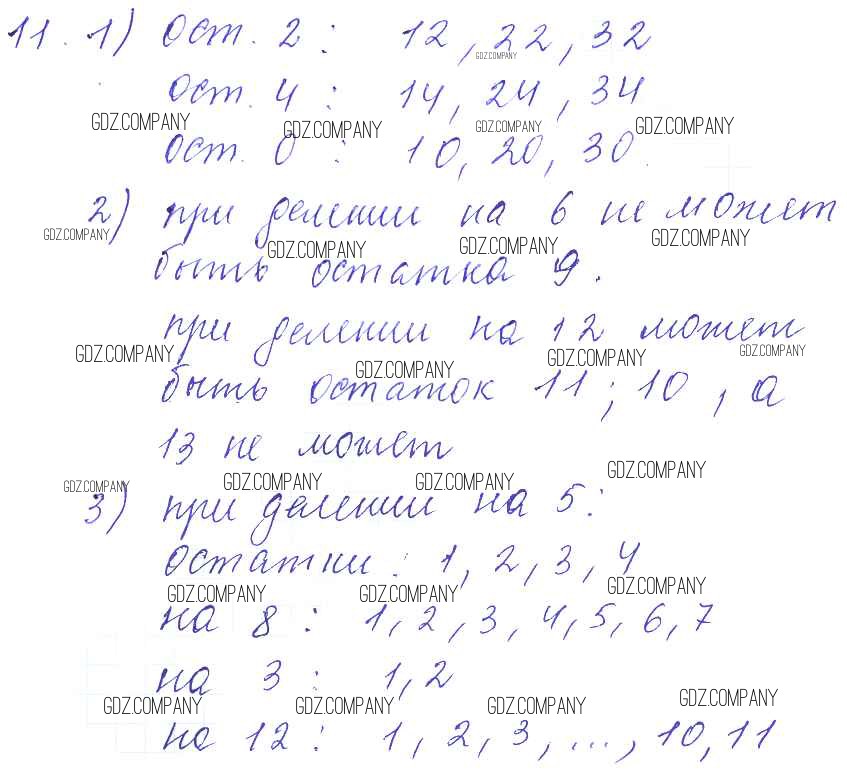 11. 1) ост. 2 : 12, 22, 32
GDZ.COMPANY
ост. 4 : 14, 24, 34
GDZ.COMPANY GDZ.COMPANY GDZ.COMPANY GDZ.COMPANY
ост. 0 : 10, 20, 30.
2) при делении на 6 не может
GDZ.COMPANY GDZ.COMPANY GDZ.COMPANY GDZ.COMPANY
быть остатка 9.
при делении на 12 может
GDZ.COMPANY GDZ.COMPANY GDZ.COMPANY GDZ.COMPANY
быть остаток 11; 10, а
13 не может
GDZ.COMPANY GDZ.COMPANY GDZ.COMPANY GDZ.COMPANY
3) при делении на 5:
остатки: 1, 2, 3, 4
GDZ.COMPANY GDZ.COMPANY GDZ.COMPANY
на 8 : 1, 2, 3, 4, 5, 6, 7
на 3 : 1, 2
GDZ.COMPANY GDZ.COMPANY GDZ.COMPANY GDZ.COMPANY
на 12 : 1, 2, 3, ..., 10, 11